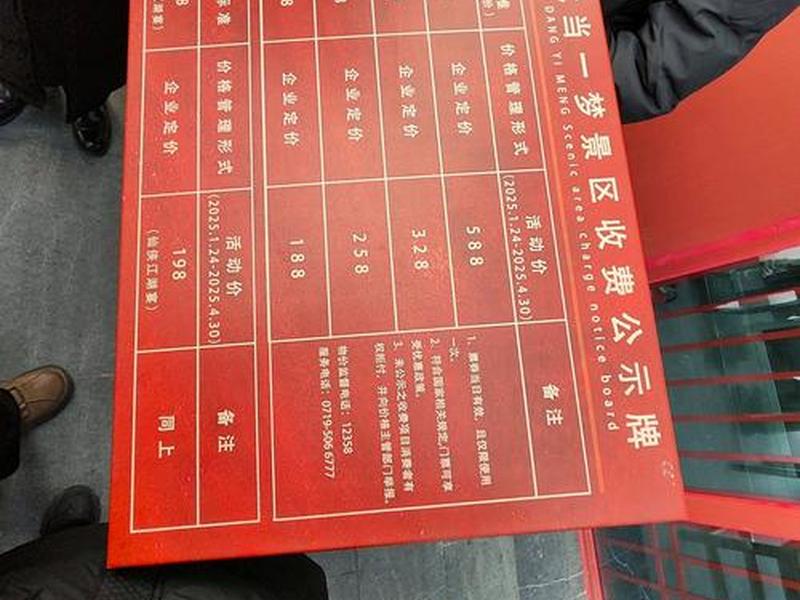 当一梦景区收费公示牌
DANG YI MENG Scenic area charge notice board
价格管理形式 活动价 备注
(2025.1.24-2025.4.30)
企业定价 588
企业定价 328
企业定价 258
企业定价 188
1、票券当日有效，且仅限使用
一次。
2、符合国家相关规定,门票可享
受优惠政策。
3、未公示之收费项目消费者有
权拒付，并向价格主管部门举报。
物价监督电话：12358
服务电话：0719-5066777
标准 价格管理形式 活动价 备注
(2025.1.24-2025.4.30)
8 企业定价 198 同上
江湖宴) (仙侠江湖宴)